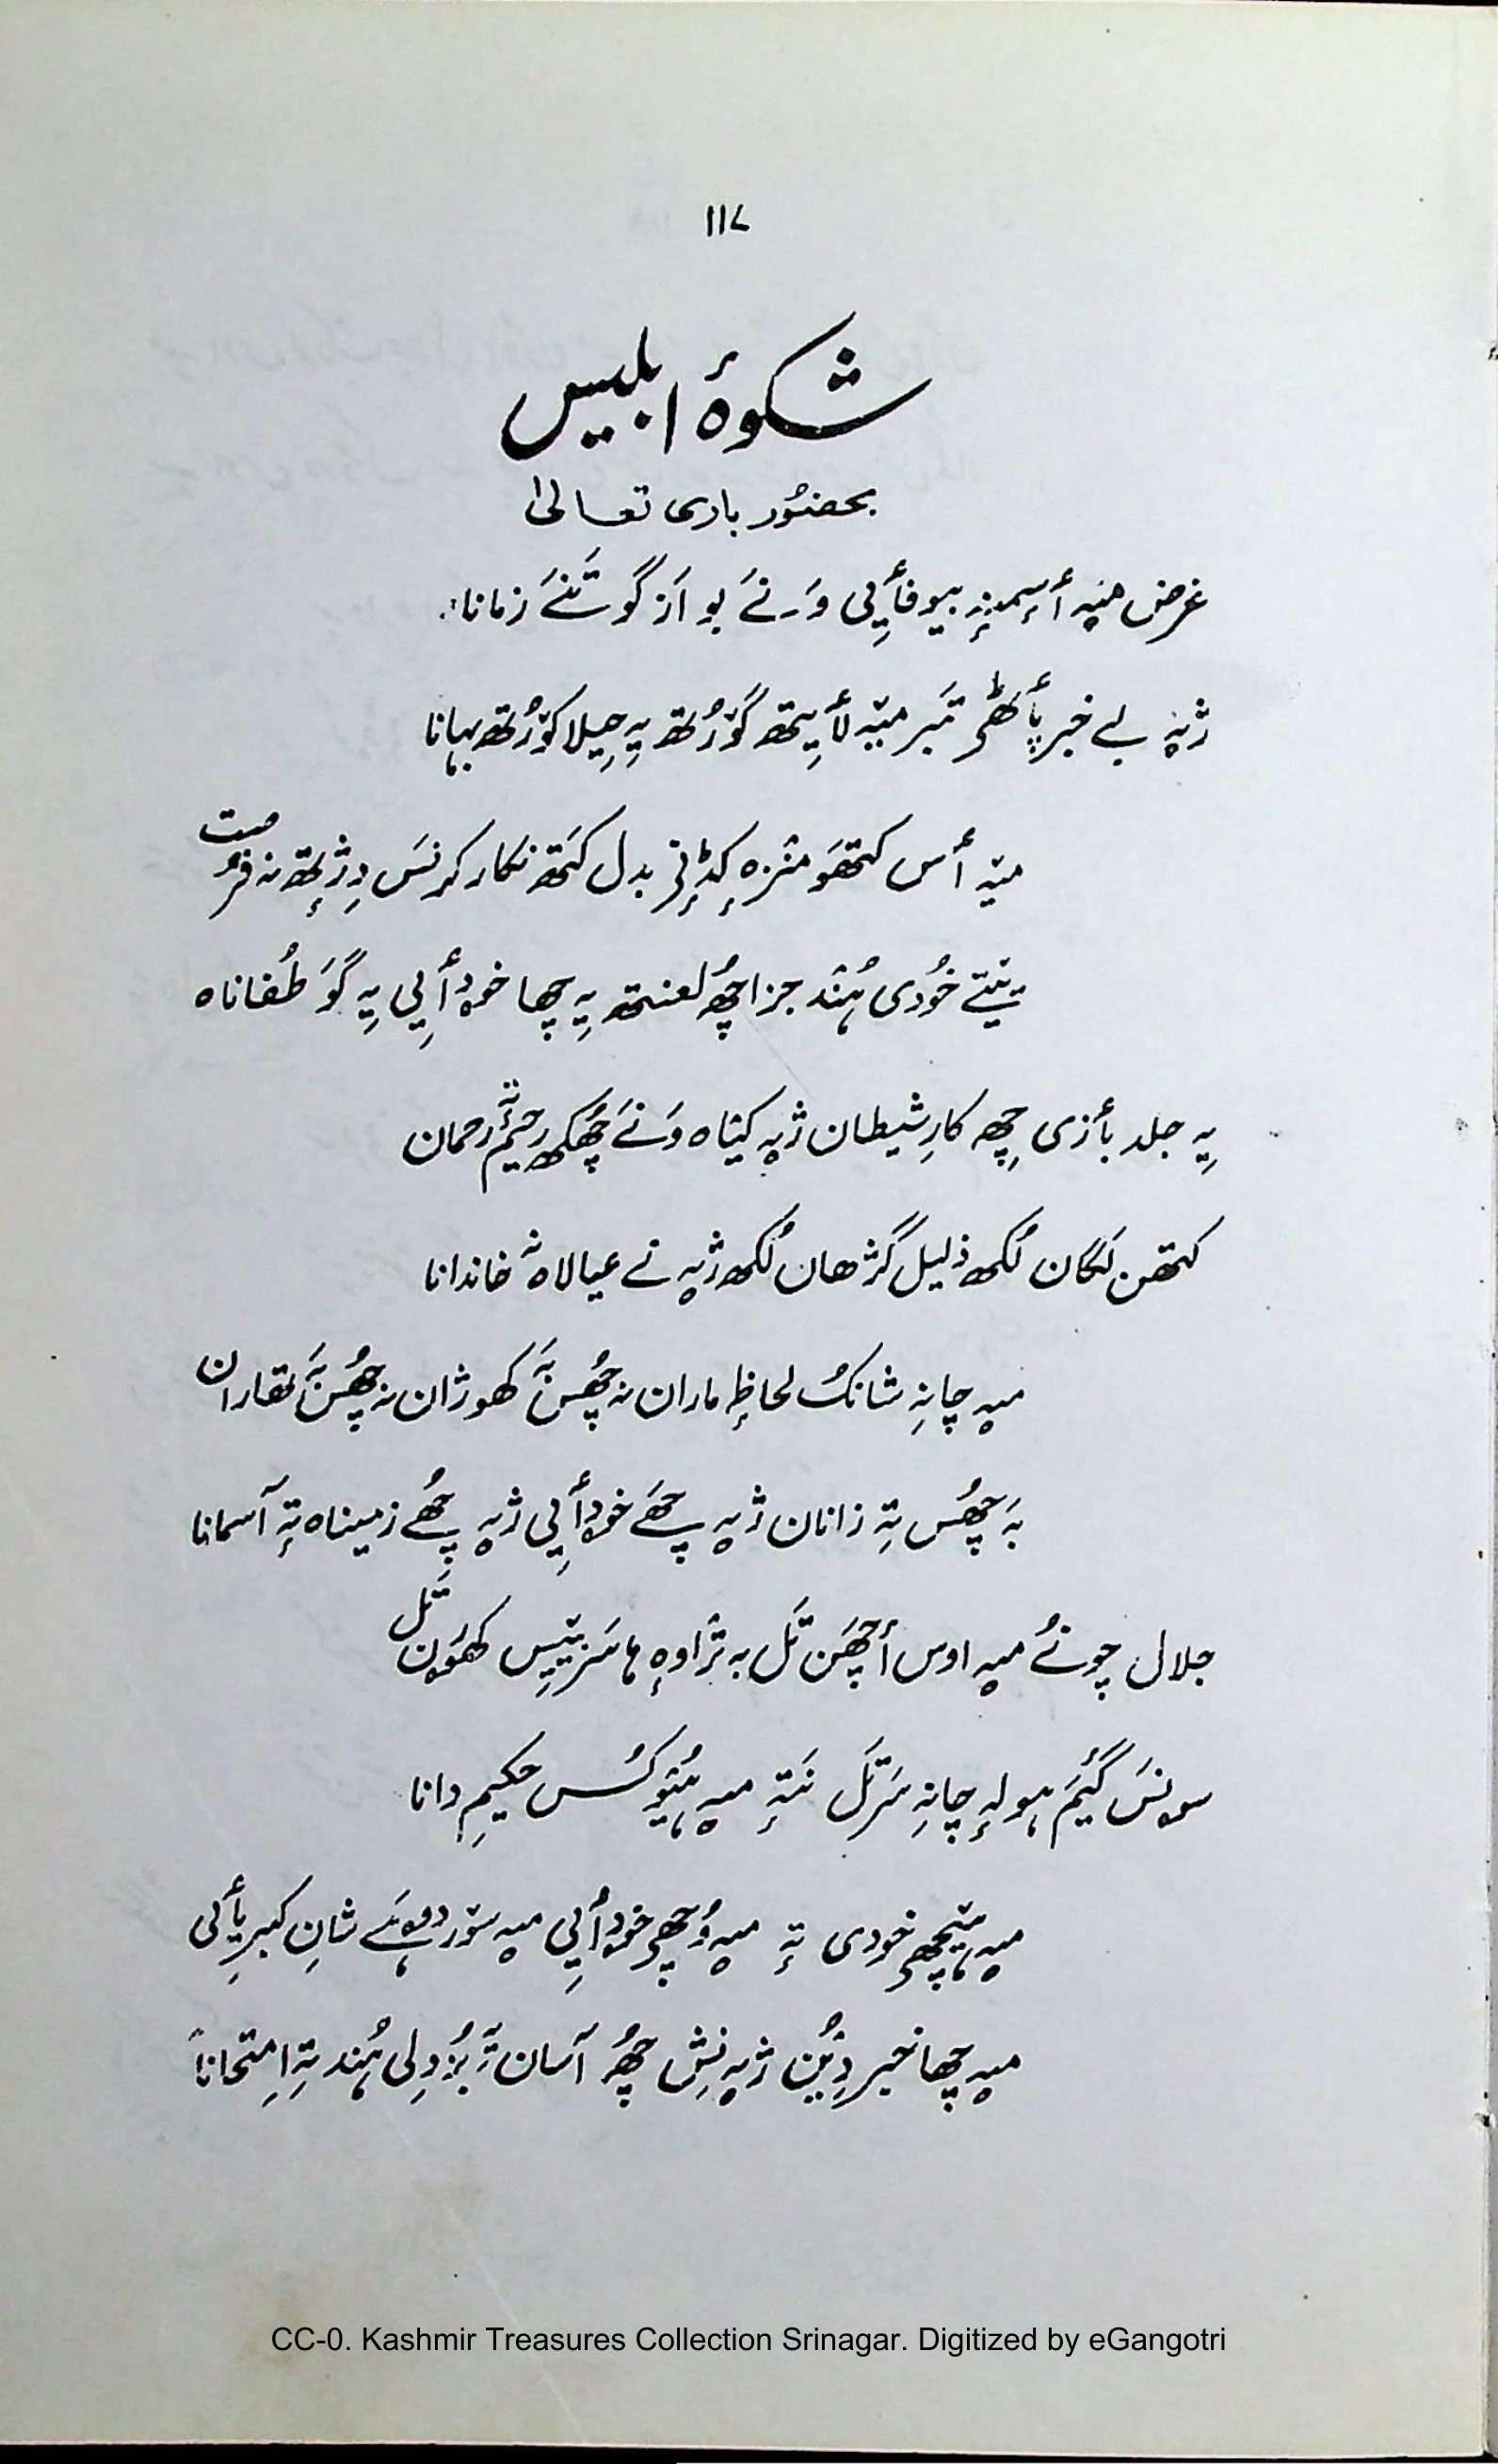 ۱۱۷
شکوۂ ابلیس
بحضوٗر باری تعالیٰ
غرض میٚہ أسٕمنہٕ بیوفأیی وَنَے بو اَز گوٚتنَے زمانا؛
ژیٚہ بے خبر پٲٹھۍ تَبر میٚہ لأیتھ کوٚرُتھ یہِ حیلا کوٚرُتھ بہانا
میٚہ أس کتھَو منٛزہ کڈٕنۍ بدل کَتھ نکار کرنَس دِژٕتھ نہ فرصت
یتیٚے خُودی ہُنٛد جزا چھُ لعنتھ یہِ چھا خودأیی یہِ گوَ طُفاناہ
یہِ جلد بأزی چھِ کارِ شیطان ژیٚہ کیٛاہ وَنَے چھُکھ رحیٖم تہٕ رحمان
کتھن لَگان لُکھ ذلیل گژھان لُکھ ژیٚہ نے عیالاہ تہٕ خاندانا
میٚہ چانہِ شانُک لحاظٕ ماران نہ چھُس بہَ کھوژان نہ چھُس بہَ تھاران
بہَ چھُس تہِ زانان ژیٚہ چھَے خودأیی ژیٚہ چھُے زمیناہ تہٕ آسمانا
جلال چونُے میٚہ اوس أچھَن تَل بہ ترٛاوہٕ ہا سَر یتیٚس کھۄرَن تَل
سونَس گیٚمَ ہولہٕ چانہِ سَرتَل نَتہٕ میٚہ ہیٛو کُس حکیمِ دانا
میٚہ ہیٚچھۍ خودی تہٕ میٚہ وُچھۍ خودأیی میٚہ سورِ دوہَے شانِ کبریأیی
میٚہ چھا خبر دیٛن ژیٚہ نِش چھُ آسان تہٕ بُزدِلی ہُنٛد تہِ اِمتحاناً
CC-0. Kashmir Treasures Collection Srinagar. Digitized by eGangotri